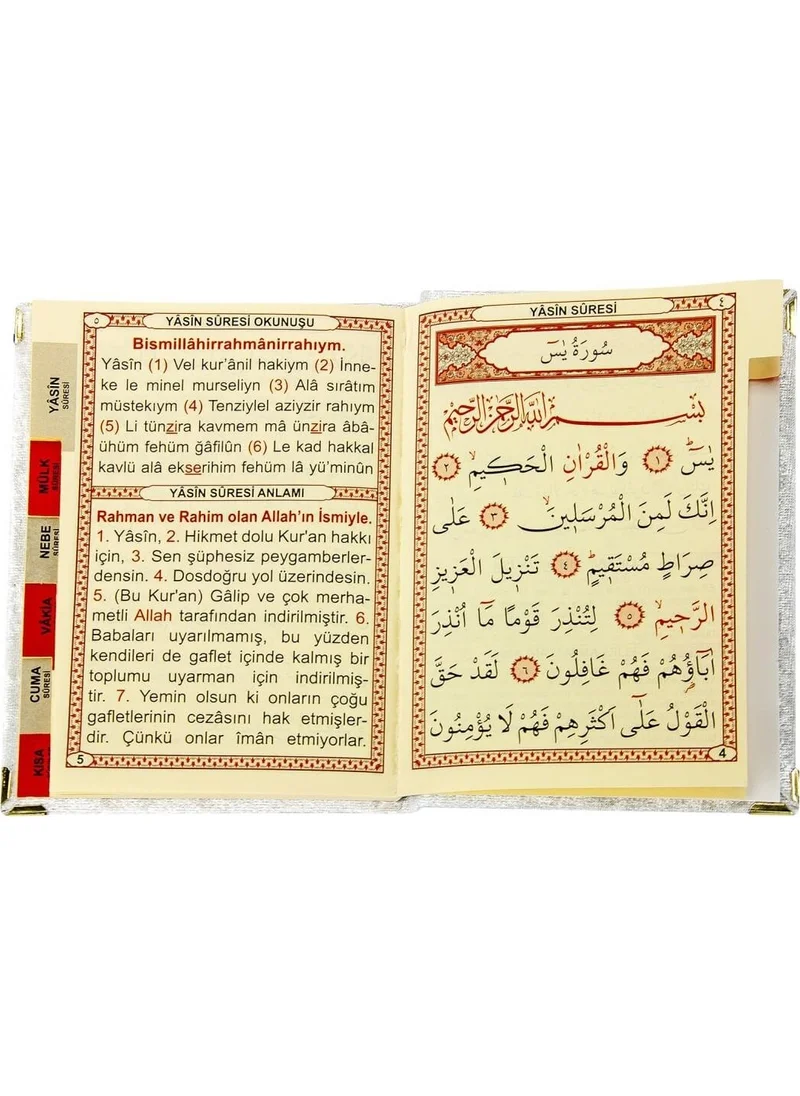 YÂSİN SÛRESİ
٤
سُورَةُ يٰسٓ
بِسْمِ اللّٰهِ الرَّحْمٰنِ الرَّحِيمِ
يٰسٓ ﴿١﴾ وَالْقُرْاٰنِ الْحَكِيمِ ﴿٢﴾
اِنَّكَ لَمِنَ الْمُرْسَلِينَ ﴿٣﴾ عَلٰى
صِرَاطٍ مُسْتَقِيمٍ ﴿٤﴾ تَنْزِيلَ الْعَزِيزِ
الرَّحِيمِ ﴿٥﴾ لِتُنْذِرَ قَوْمًا مَٓا اُنْذِرَ
اٰبَٓاؤُهُمْ فَهُمْ غَافِلُونَ ﴿٦﴾ لَقَدْ حَقَّ
الْقَوْلُ عَلٰٓى اَكْثَرِهِمْ فَهُمْ لَا يُؤْمِنُونَ
4
٥
YÂSİN SÛRESİ OKUNUŞU
Bismillâhirrahmânirrahıym.
Yâsîn (1) Vel kur'ânil hakiym (2) İnne-
ke le minel murseliyn (3) Alâ sırâtım
müstekıym (4) Tenziylel aziyzir rahıym
(5) Li tünzira kavmem mâ ünzira âbâ-
ühüm fehüm ğâfilûn (6) Le kad hakkal
kavlü alâ ekserihim fehüm lâ yü'minûn
YÂSİN SÛRESİ ANLAMI
Rahman ve Rahim olan Allah'ın İsmiyle.
1. Yâsîn, 2. Hikmet dolu Kur'an hakkı
için, 3. Sen şüphesiz peygamberler-
densin. 4. Dosdoğru yol üzerindesin.
5. (Bu Kur'an) Gâlip ve çok merha-
metli Allah tarafından indirilmiştir. 6.
Babaları uyarılmamış, bu yüzden
kendileri de gaflet içinde kalmış bir
toplumu uyarman için indirilmiş-
tir. 7. Yemin olsun ki onların çoğu
gafletlerinin cezâsını hak etmişler-
dir. Çünkü onlar îmân etmiyorlar.
5
YÂSÎN
SÛRESİ
MÜLK
SÛRESİ
NEBE
SÛRESİ
VÂKIA
CUMA
SÛRESİ
KISA